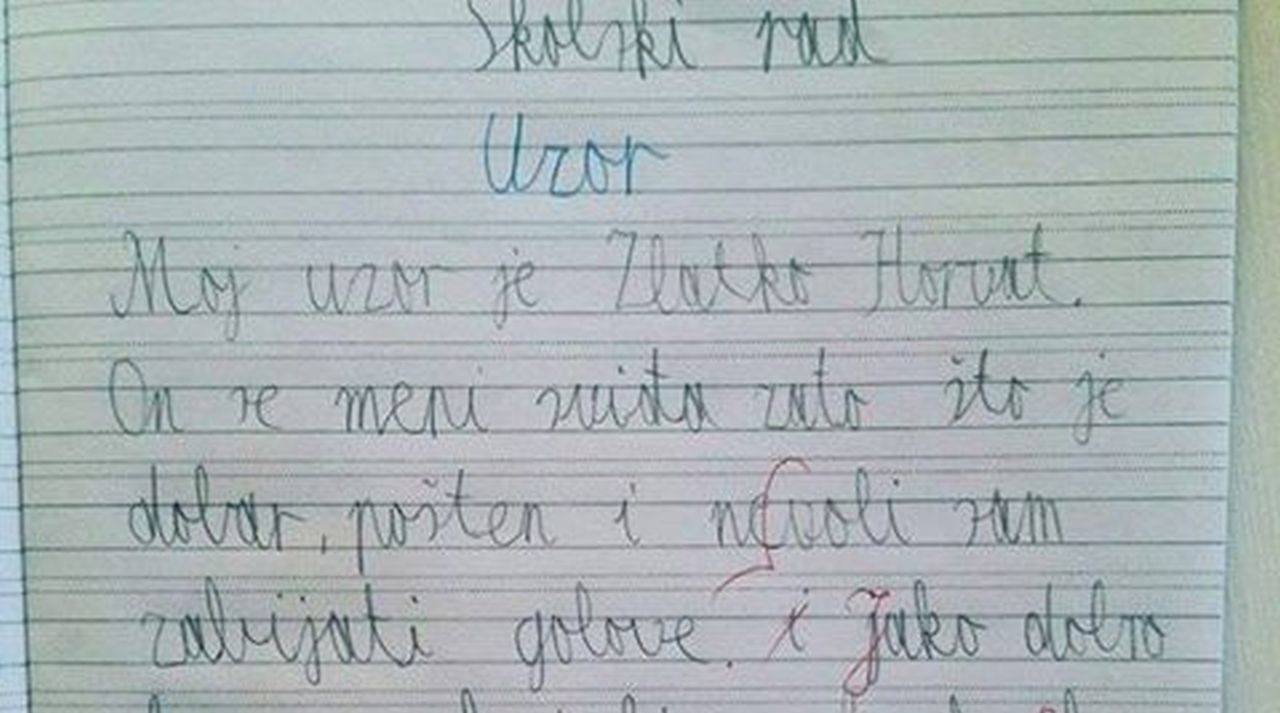 Školski rad
Uzor
Moj uzor je Zlatko Horvat.
On se meni sviđa zato što je
dobar, pošten i nevoli sam
zabijati golove. i Jako dobro